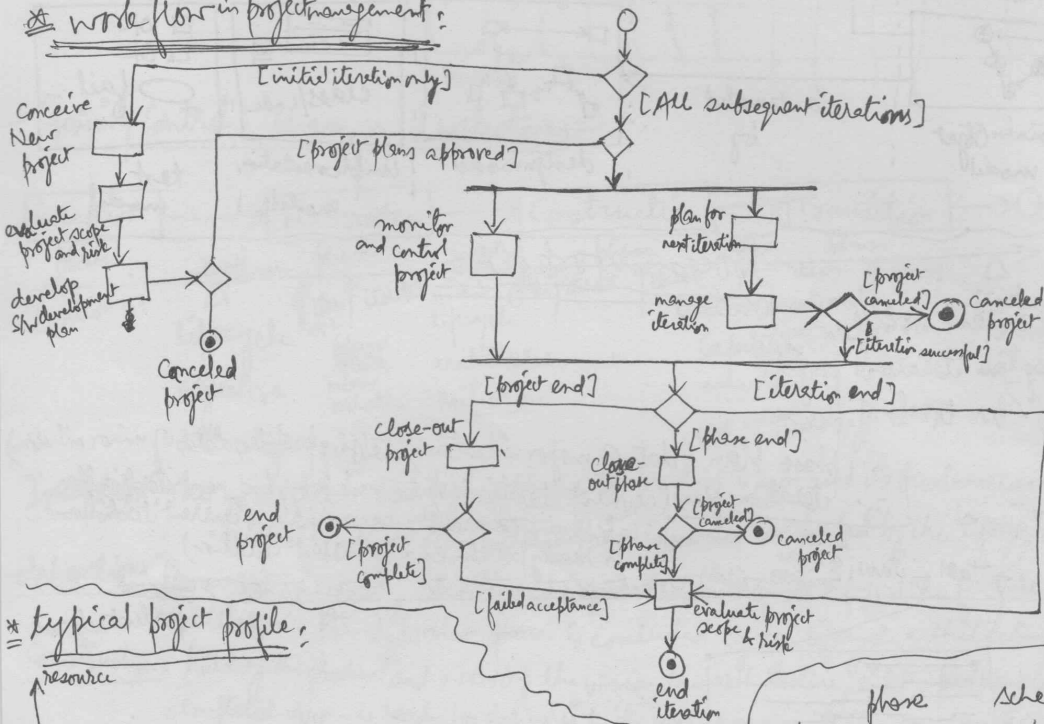 * work flow in project management :
[initial iteration only]
[All subsequent iterations]
Conceive
New
project
[project plans approved]
evaluate
project scope
and risk
develop
S/W development
plan
Canceled
project
monitor
and control
project
plan for
next iteration
manage
iteration
[project
canceled]
Canceled
project
[iteration successful]
[project end]
[iteration end]
close-out
project
[phase end]
close-
out phase
[project
canceled]
canceled
project
end
project
[project
complete]
[phase
complete]
[failed acceptance]
evaluate project
scope
& risk
end
iteration
* typical project profile :
resource
phase
sche